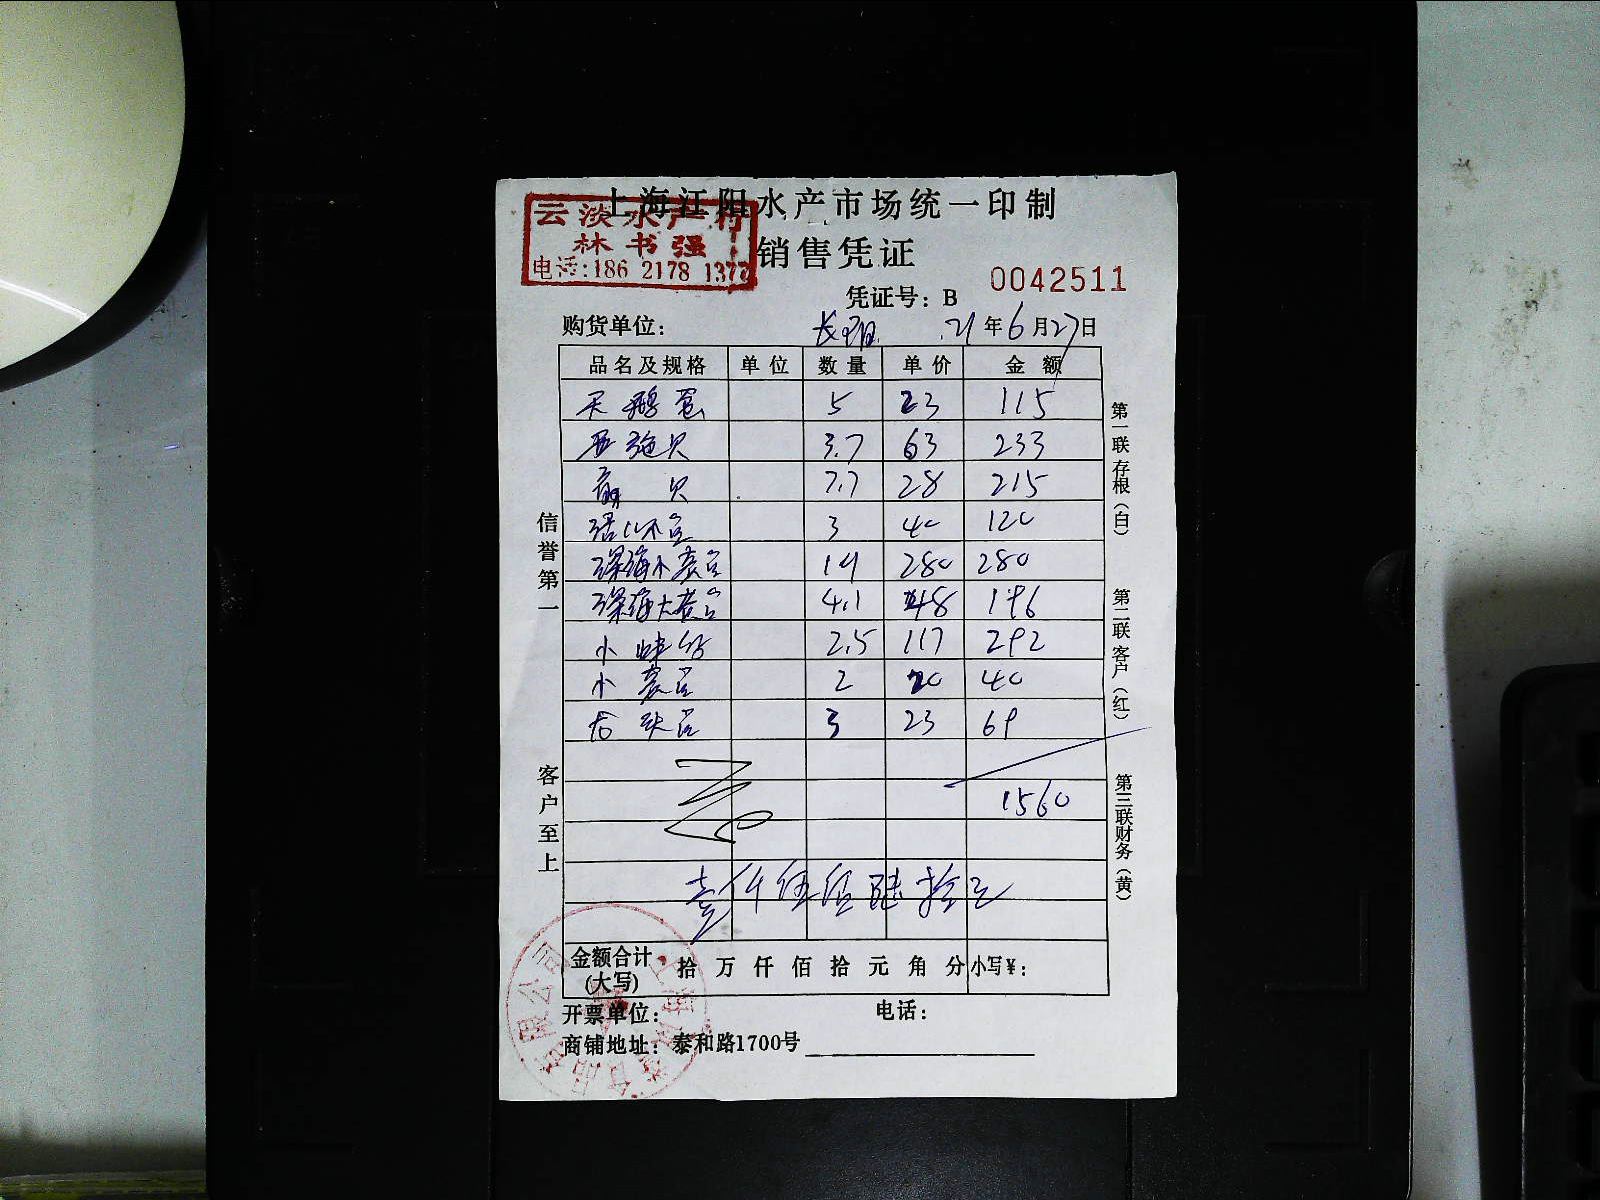 上海江阳水产市场统一印制
云淡水产行
林书强
电话:186 2178 1377
销售凭证
0042511
凭证号：B
购货单位： 21年6月27日
品名及规格 单位 数量 单价 金额
天鹅蛋 5 23 115
3.7 63 233
贝 7.7 28 215
3 40 120
深海小 14 280 280
深海大 4.1 48 196
小 2.5 117 292
小 2 20 40
3 23 69
1560
壹仟伍佰陆拾元
金额合计(大写) 拾万仟佰拾元角分 小写¥：
开票单位： 电话：
商铺地址：泰和路1700号
信誉第一
客户至上
第一联存根（白）
第二联客户（红）
第三联财务（黄）